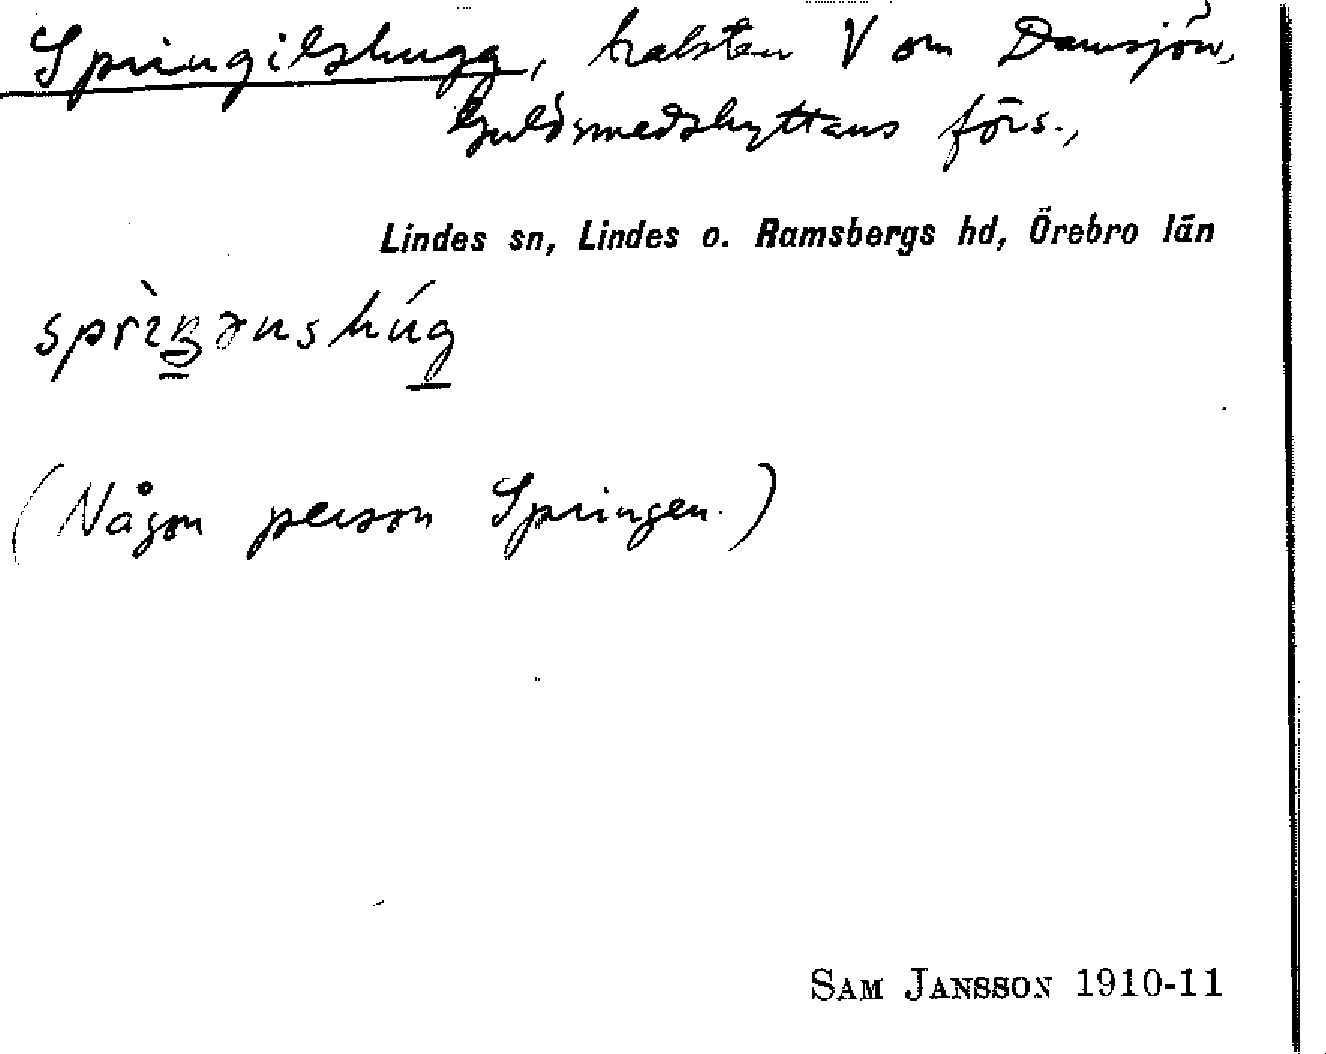 Springilshugg, trakten V om Damsjön,
Guldsmedshyttans förs.,
Lindes sn, Lindes o. Ramsbergs hd, Örebro län
(Någon person Springen.)
SAM JANSSON 1910-11